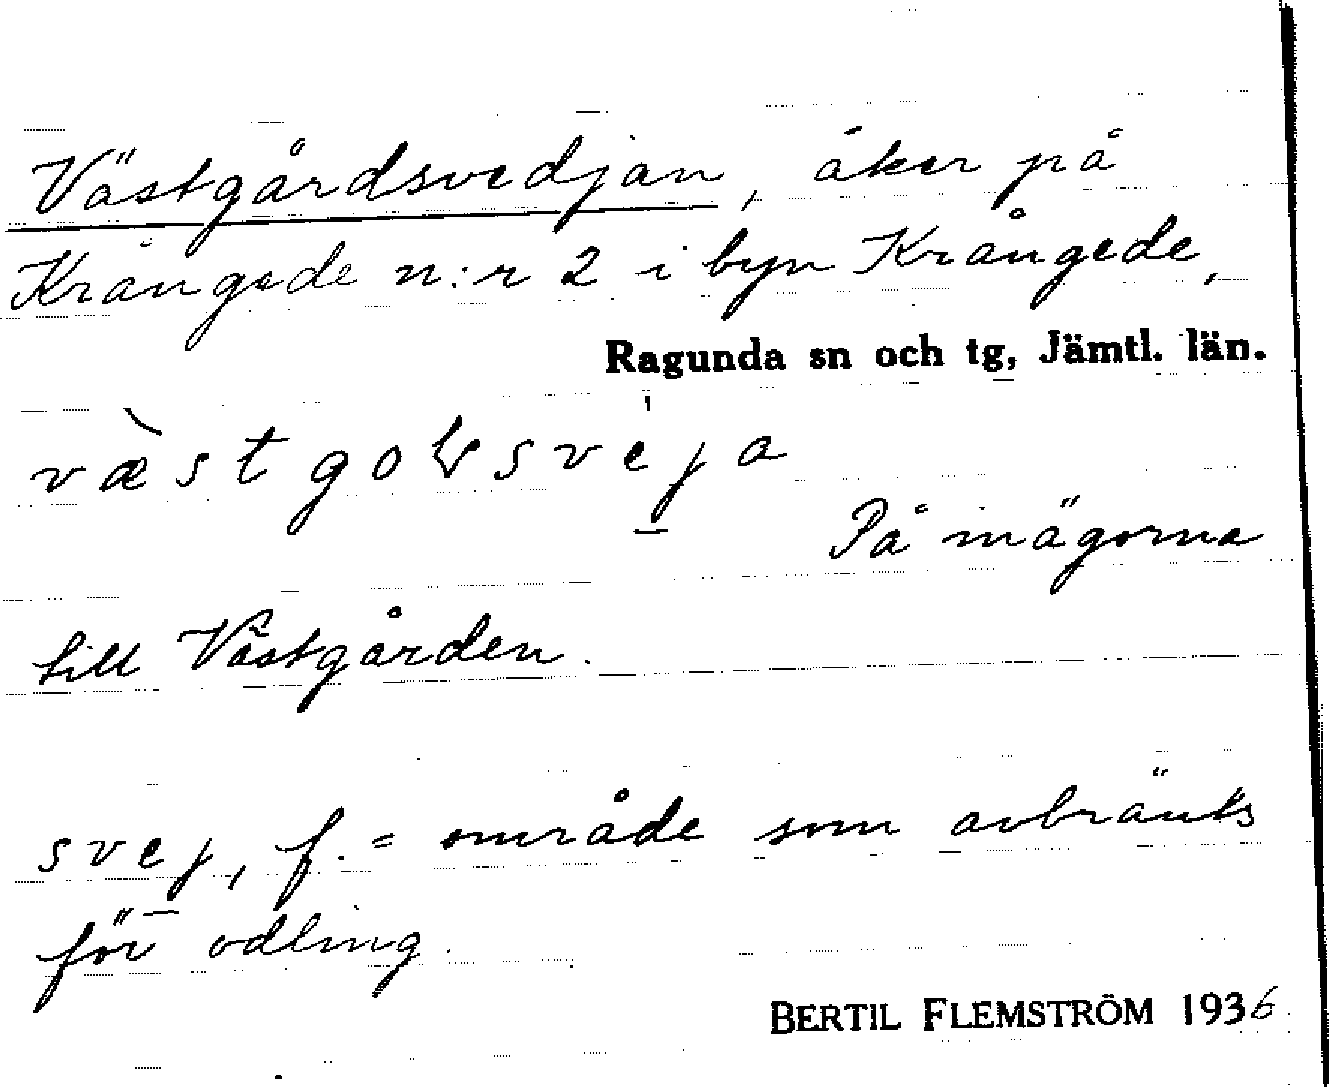 Västgårdsvedjan, åker på
Krångede n:r 2 i byn Krångede,
Ragunda sn och tg, Jämtl. län.
På inägorna
till Västgården.
svej, f. = område som avbränts
för odling.
BERTIL FLEMSTRÖM 1936